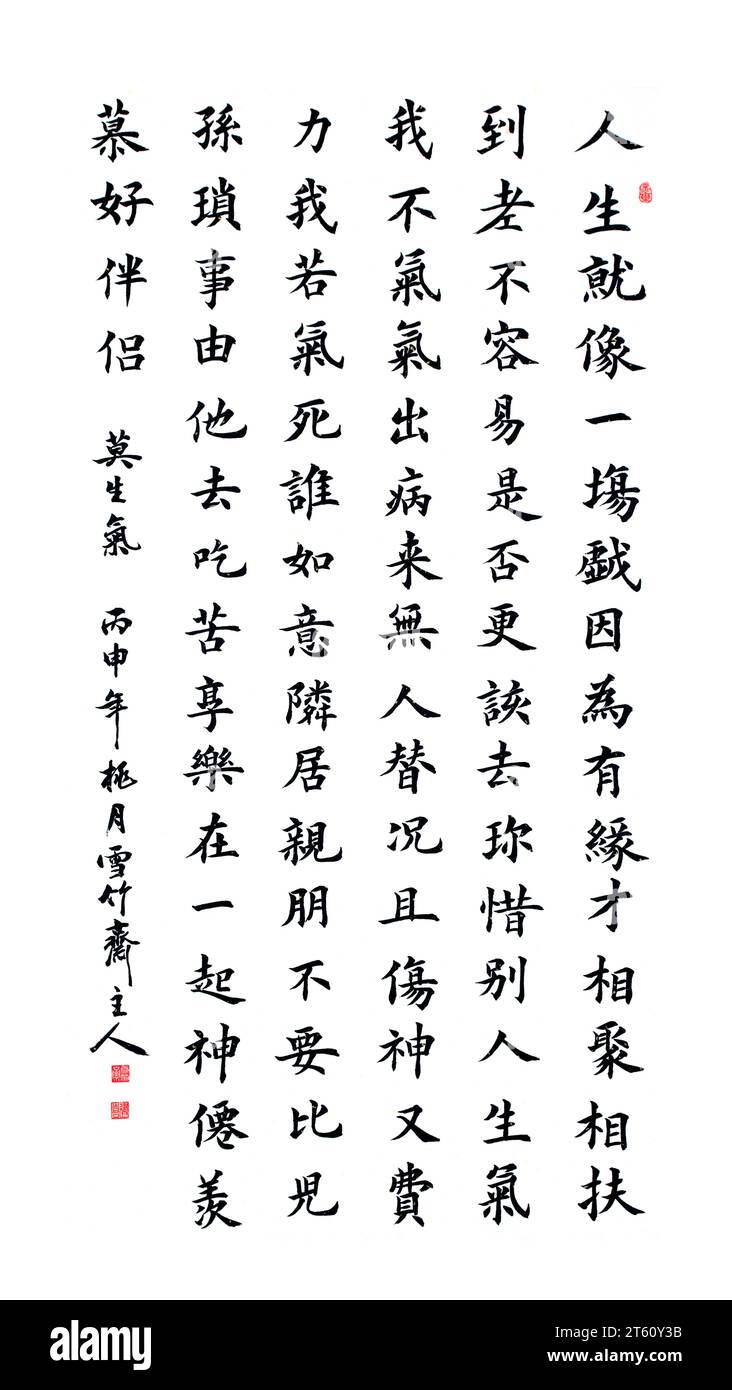 人生就像一塲戯因為有緣才相聚相扶
到老不容易是否更該去珎惜别人生氣
我不氣氣出病来無人替况且傷神又費
力我若氣死誰如意隣居親朋不要比児
孫瑣事由他去吃苦享樂在一起神僊羨
慕好伴侣 莫生氣 丙申年桃月雪竹齋主人
alamy
Image ID: 2T60Y3B
www.alamy.com